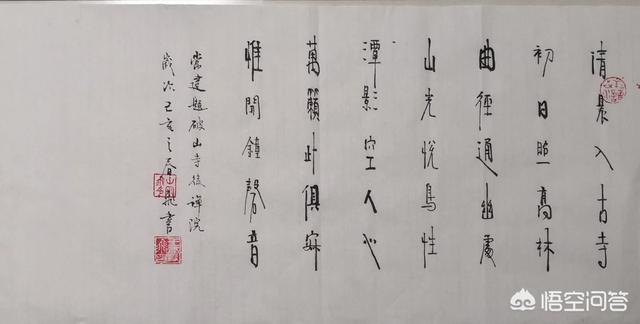 清晨入古寺
初日照高林
曲徑通幽處
山光悅鳥性
潭影空人心
萬籟此俱寂
惟聞鐘磬音
常建題破山寺後禪院
歲次己亥之春書
悟空问答